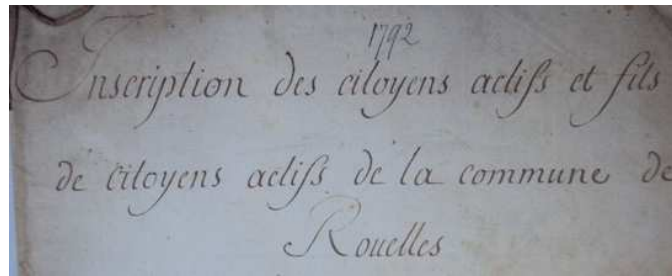 1792
Inscription des citoyens actifs et fils
de citoyens actifs de la commune de
Rouelles